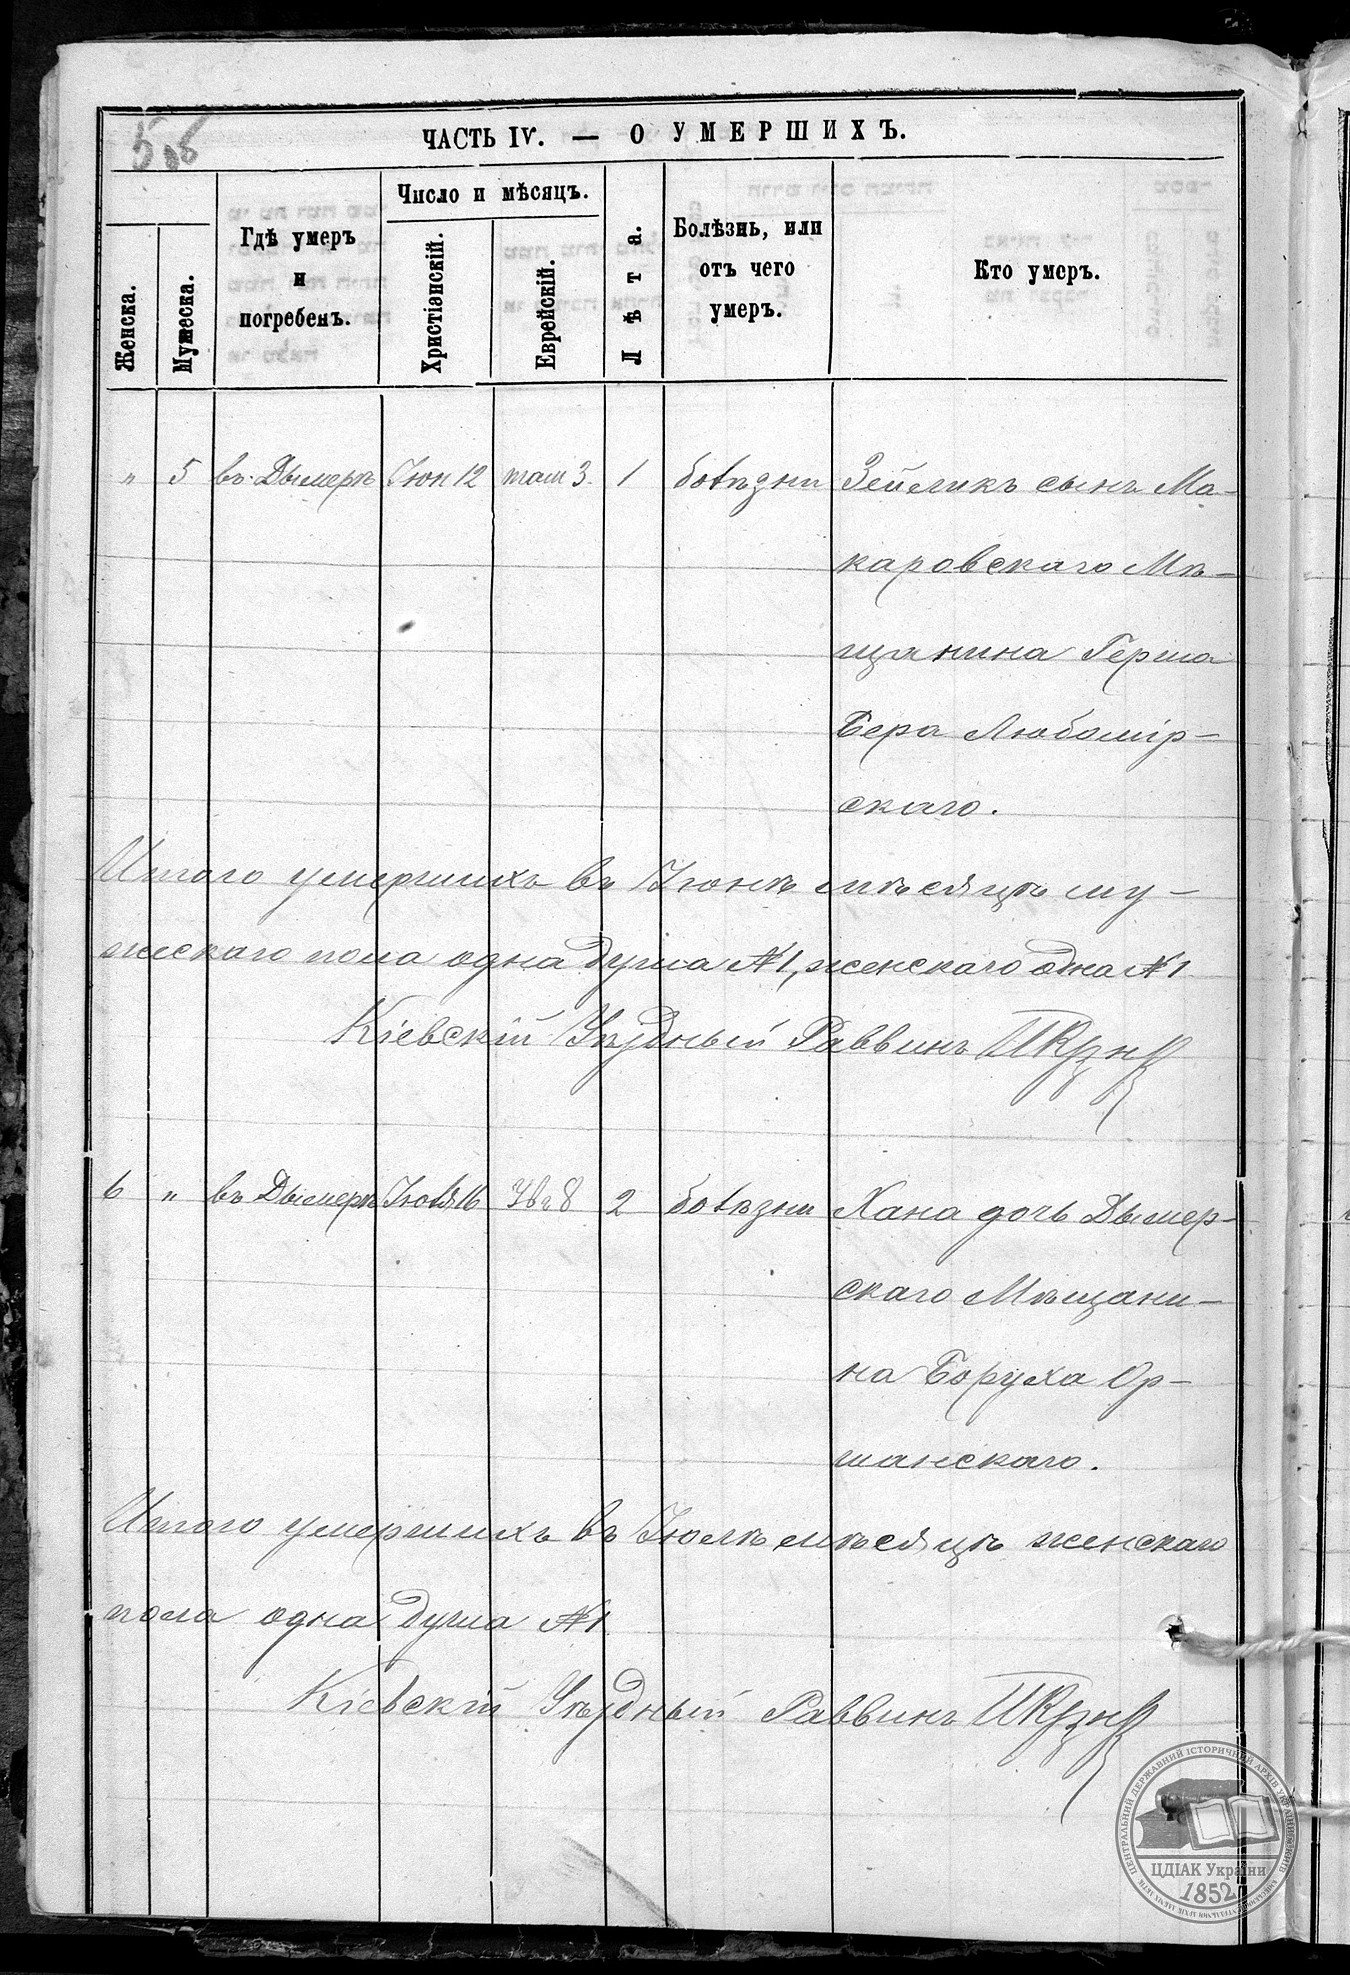 5об
ЧАСТЬ IV. — О УМЕРШИХЪ.
Женска.
Мужеска.
Гдѣ умеръ
и
погребенъ.
Число и мѣсяцъ.
Христіанскій.
Еврейскій.
Лѣта.
Болѣзнь, или
отъ чего
умеръ.
Кто умеръ.
" 5 въ Дымерѣ Іюн 12 там 3. 1 болѣзни Зейликъ сынъ Ма-
каровскаго Мѣ-
щанина Герша
Бера Любомір-
скаго.
Итого умершихъ въ Іюнѣ мѣсяцѣ му-
жескаго пола одна душа №1, женскаго одна №1
Кіевскій Уѣздный Раввинъ
6 " въ Дымерѣ Іюля 16 8 2 болѣзни Хана дочь Дымер-
скаго Мѣщани-
на Боруха Ор-
шанскаго.
Итого умершихъ въ Іюлѣ мѣсяцѣ женскаго
пола одна душа №1
Кіевскій Уѣздный Раввинъ
ЦЕНТРАЛЬНИЙ ДЕРЖАВНИЙ ІСТОРИЧНИЙ АРХІВ УКРАЇНИ, М. КИЇВ
ЦДІАК України
1852